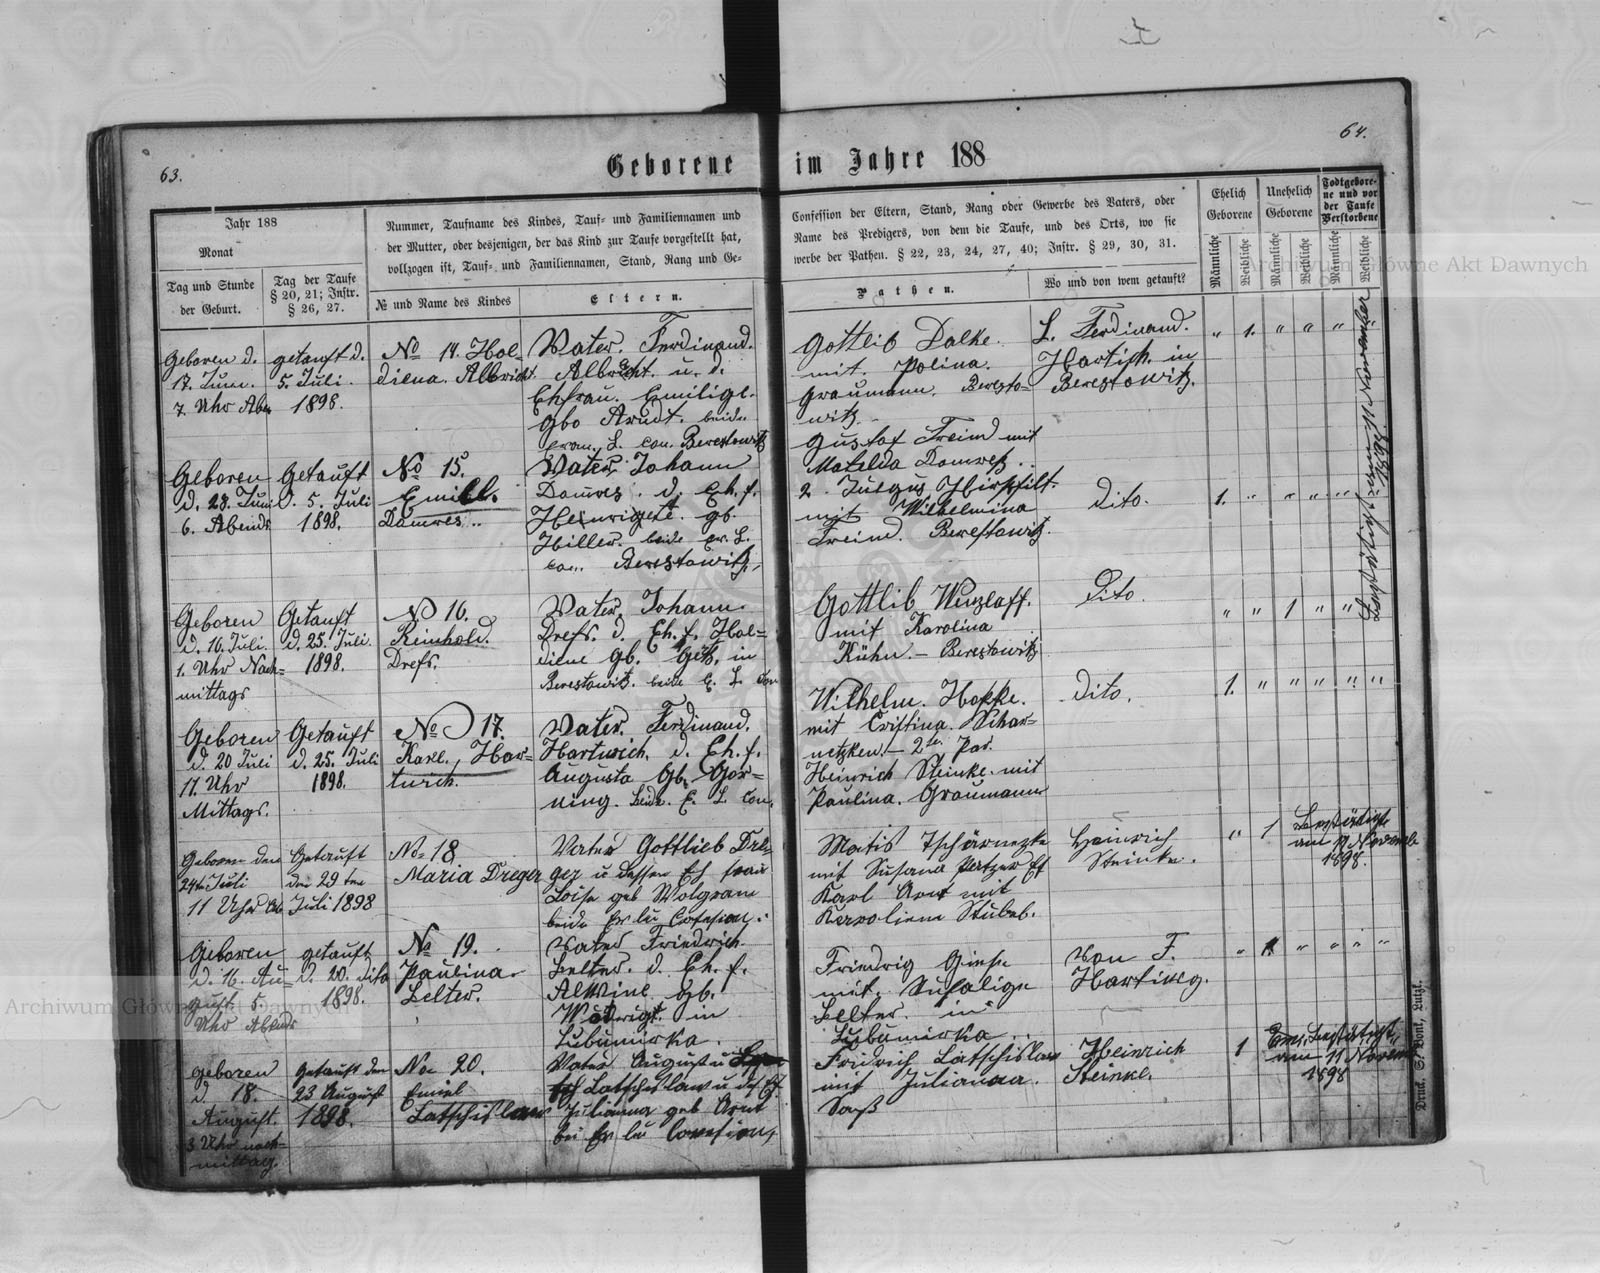 63.
64.
Geborene im Jahre 188
Jahr 188
Monat
Tag und Stunde
der Geburt.
Tag der Taufe
§ 20, 21; Instr.
§ 26, 27.
Nummer, Taufname des Kindes, Tauf- und Familiennamen und
der Mutter, oder desjenigen, der das Kind zur Taufe vorgestellt hat,
vollzogen ist, Tauf- und Familiennamen, Stand, Rang und Ge-
№ und Name des Kindes
Eltern.
Confession der Eltern, Stand, Rang oder Gewerbe des Vaters, oder
Name des Predigers, von dem die Taufe, und des Orts, wo sie
werbe der Pathen. § 22, 23, 24, 27, 40; Instr. § 29, 30, 31.
Pathen.
Wo und von wem getauft?
Ehelich
Geborene
Unehelich
Geborene
Todtgebore-
ne und vor
der Taufe
Verstorbene
Männliche
Weibliche
Männliche
Weibliche
Männliche
Weibliche
Geboren d.
17. Juni.
7. Uhr Aben
getauft d.
5. Juli.
1898.
No 14. Hol-
diena. Albricht
Vater. Ferdinand.
Albricht. u. d.
Ehfrau. Emilige.
Gbo Arndt. beide
evan. L. con. Berestowitz
Gottlib Dalke.
mit. Polina.
Graumann. Beresto-
witz.
L. Ferdinand.
Hartich. in
Berestowitz.
" 1. " " "
Geboren
d. 28. Juni
6. Abends
Getauft
d. 5. Juli
1898.
No 15.
Emill.
Damres..
Vater. Johann
Damres. d. Eh. f.
Heinrigete. gb.
Hiller. beide ev. L.
con. Berestowitz,
Gustaf Freind mit
Matilda Domres.
2. Julgus Hirschilt.
mit Wilhelmina
Freind. Berestowitz.
Dito.
1. " " " "
Geboren
d. 16. Juli.
1. Uhr Nach-
mittags
Getauft
d. 25. Juli.
1898.
No 16.
Reinhold.
Drefs.
Vater. Johann.
Drefs. d. Eh. f. Hol-
diene gb. Götz. in
Berestowitz. beide E. L. Con
Gottlib Wenzlaff.
mit Karolina
Kühn. - Berestowitz
Dito.
" " 1 " "
Geboren
d. 20 Juli
11. Uhr
Mittags.
Getauft
d. 25. Juli
1898.
No 17.
Karl. Har-
twich.
Vater. Ferdinand.
Hartwich. d. Eh. f.
Augusta Gb. Gor-
ning. beide. E. L. Con.
Wilhelm. Hoppe.
mit Cristina. Schar-
netzken. - 2te Par.
Heinrich Steinke. mit
Paulina. Graumann
Dito.
1. " " " " "
Geboren den
24te Juli
11 Uhr Ab
Getauft
den 29 ten
Juli 1898
No 18
Maria Dreger
Vater Gottlieb Dre-
ger u dessen Eh frau
Loise geb Wolgram
beide Ev lu Confesion.
Matis Tschärnezke
mit Susana Patzer Ef
Karl Arnt mit
Karroliene Stubeb.
Heinrich
Steinke.
" 1
Bestätigt
am 11 Novemb
1898.
Geboren
d. 16. Au-
gust 5.
Uhr Abends
getauft
d. 20. dito
1898.
No 19.
Paulina.
Zelter.
Vater Friedrich.
Zelter. d. Eh. f.
Alwine gb.
in
Lubumirka.
Friedrig Giese
mit.
Zelter. in
Lubumirka
Von F.
Hartwig.
" 1 " " " "
geboren
d. 18.
August.
3 Uhr nach-
mittag.
Getauft den
23 August
1898.
No 20.
Emiel
Latschislaw
Vater August u
Latschislaw u des Ef.
Julianna geb Arnt
bei Ev lu Confesion,
Fridrich Latschislaw
mit Julianna.
Saß
Heinrich
Steinke.
1
Bestätigt
am 11 Novem
1898
Bestätigt am 11 November
1898
Druck. St. Bont, Lutzk.
Archiwum Główne Akt Dawnych
Archiwum Główne Akt Dawnych